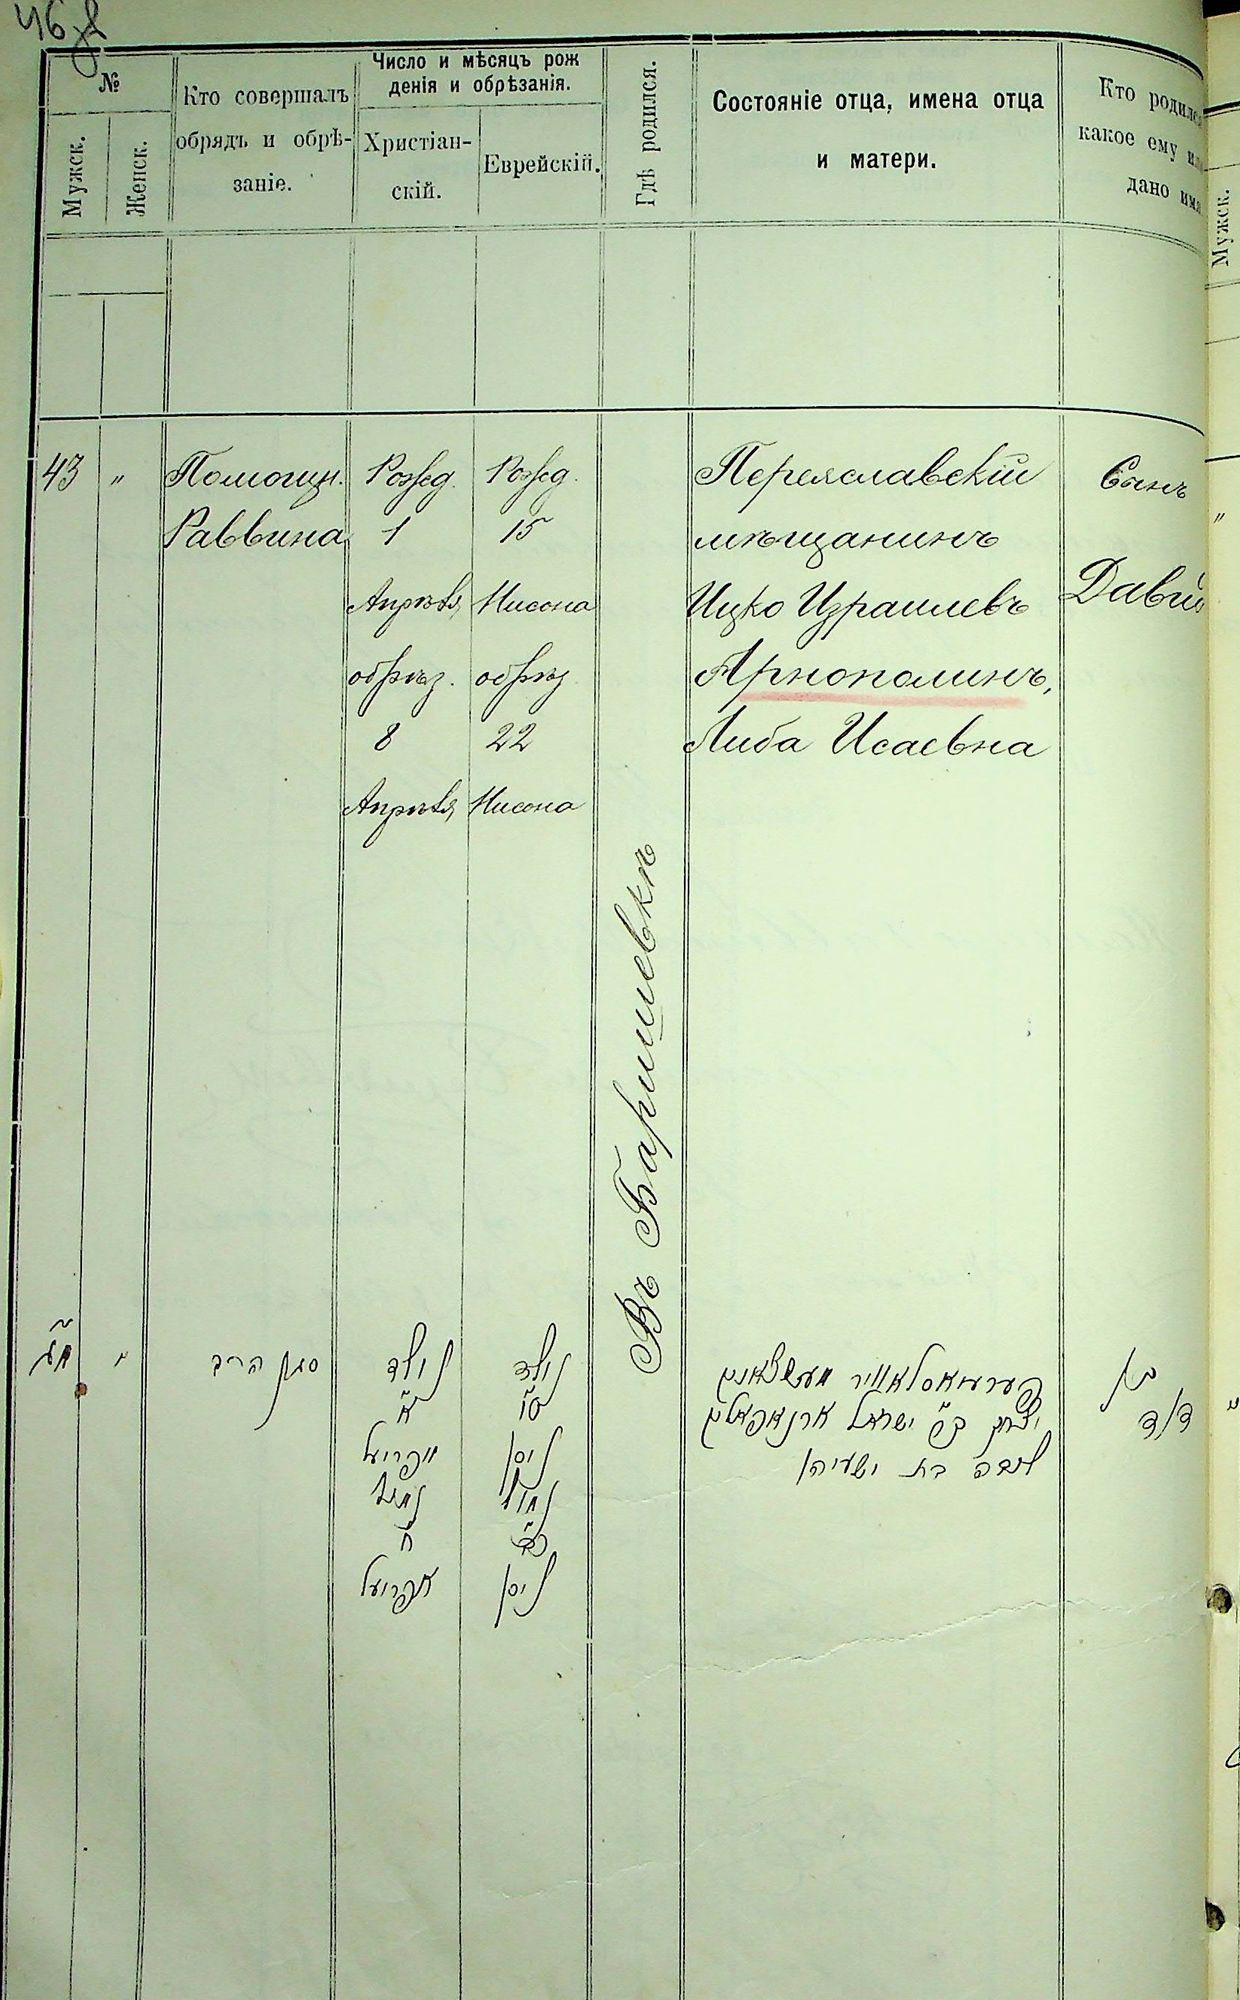 46
№
Мужск.
Женск.
Кто совершалъ
обрядъ и обрѣ-
заніе.
Число и мѣсяцъ рож
денія и обрѣзанія.
Христіан-
скій.
Еврейскій.
Гдѣ родился.
Состояніе отца, имена отца
и матери.
Кто родилс
какое ему
дано им
Мужск.
43
"
Помощн.
Раввина
Рожд.
1
Апрѣля
обрѣз.
8
Апрѣля
Рожд.
15
Нисона
обрѣз
22
Нисона
Въ Баришевкѣ
Переяславскій
мѣщанинъ
Ицко Израилевъ
Арнополинъ,
Либа Исаевна
Сынъ
Дави
"
מג
"
סגן הרב
נולד
א
אפריעל
נמול
ח
אפריעל
נולד
טו
ניסן
נמול
כב
ניסן
פערעיאסלאוויר מעשצאנין
יצחק ישראל ארנאפאלין
ליבה בת ישעיהו
בן
דוד